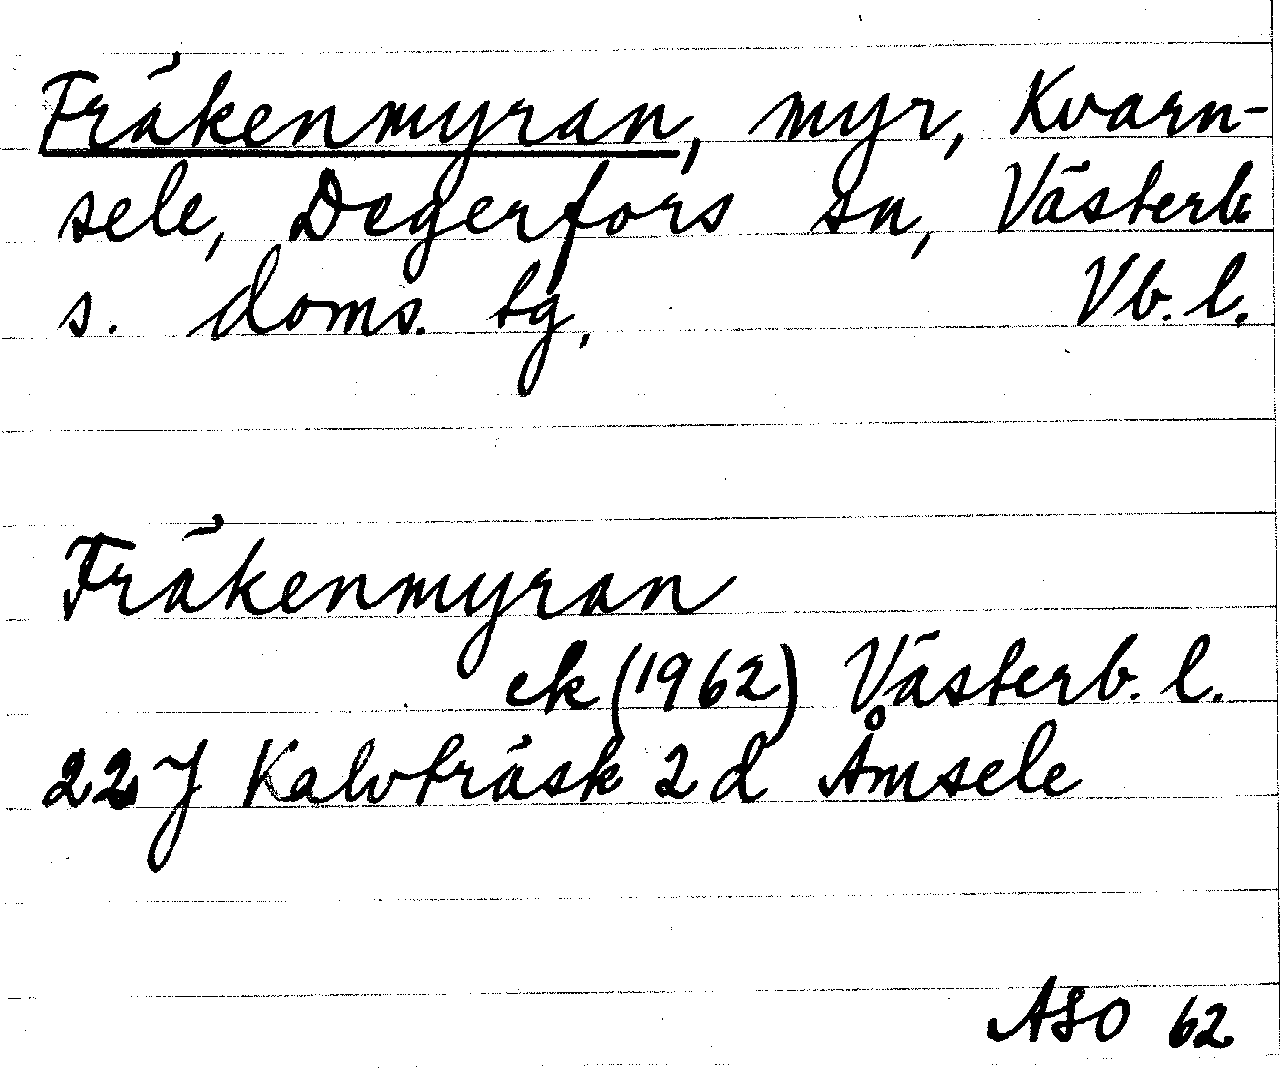 Fräkenmyran, myr, Kvarn-
sele, Degerfors sn, Västerb.
s. doms. tg, Vb. l.
Fräkenmyran
ek (1962) Västerb. l.
22 J Kalvträsk 2 d Åmsele
ASO 62